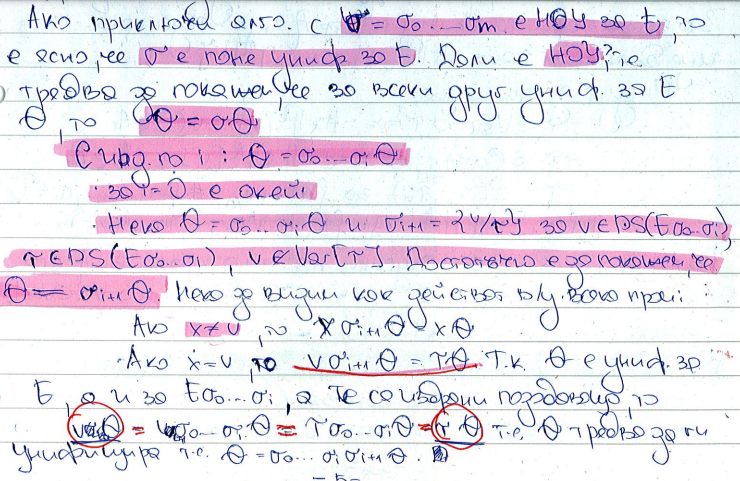 Ако приключи алго. с σ = σ₀ … σₘ е НОУ за E, то
е ясно, че σ е поне униф за E. Дали е НОУ?, т.е.
трябва да покажем, че за всеки друг униф. за E
θ, то θ = σθ
С инд. по i : θ = σ₀ … σᵢ θ
за i = 0 е окей!
Нека θ = σ₀ … σᵢ θ и σᵢ₊₁ = {v/τ} за v ∈ DS(Eσ₀..σᵢ),
τ ∈ DS(Eσ₀..σᵢ), v ∉ Var[τ]. Достатъчно е да покажем, че
θ = σᵢ₊₁ θ. Нека да видим как действат в/у всяка пром:
Ако x ≠ v, то x σᵢ₊₁ θ = x θ
Ако x = v, то v σᵢ₊₁ θ = τ θ Т.к. θ е униф. за
E, а и за Eσ₀ … σᵢ, а те са избрани то
vθ = vσ₀ … σᵢ θ = τσ₀ … σᵢ θ = τ θ т.е. θ трябва да ги
унифицира т.е. θ = σ₀ … σᵢ σᵢ₊₁ θ.